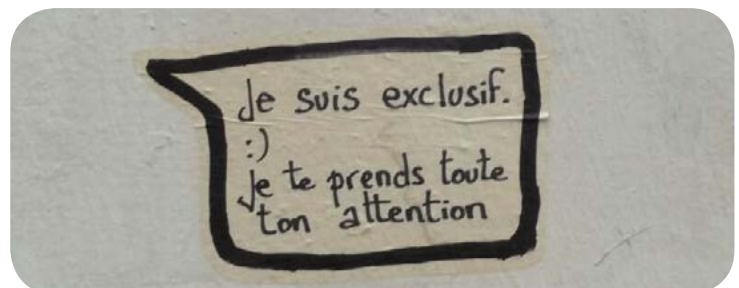 Je suis exclusif.
:)
Je te prends toute
ton attention